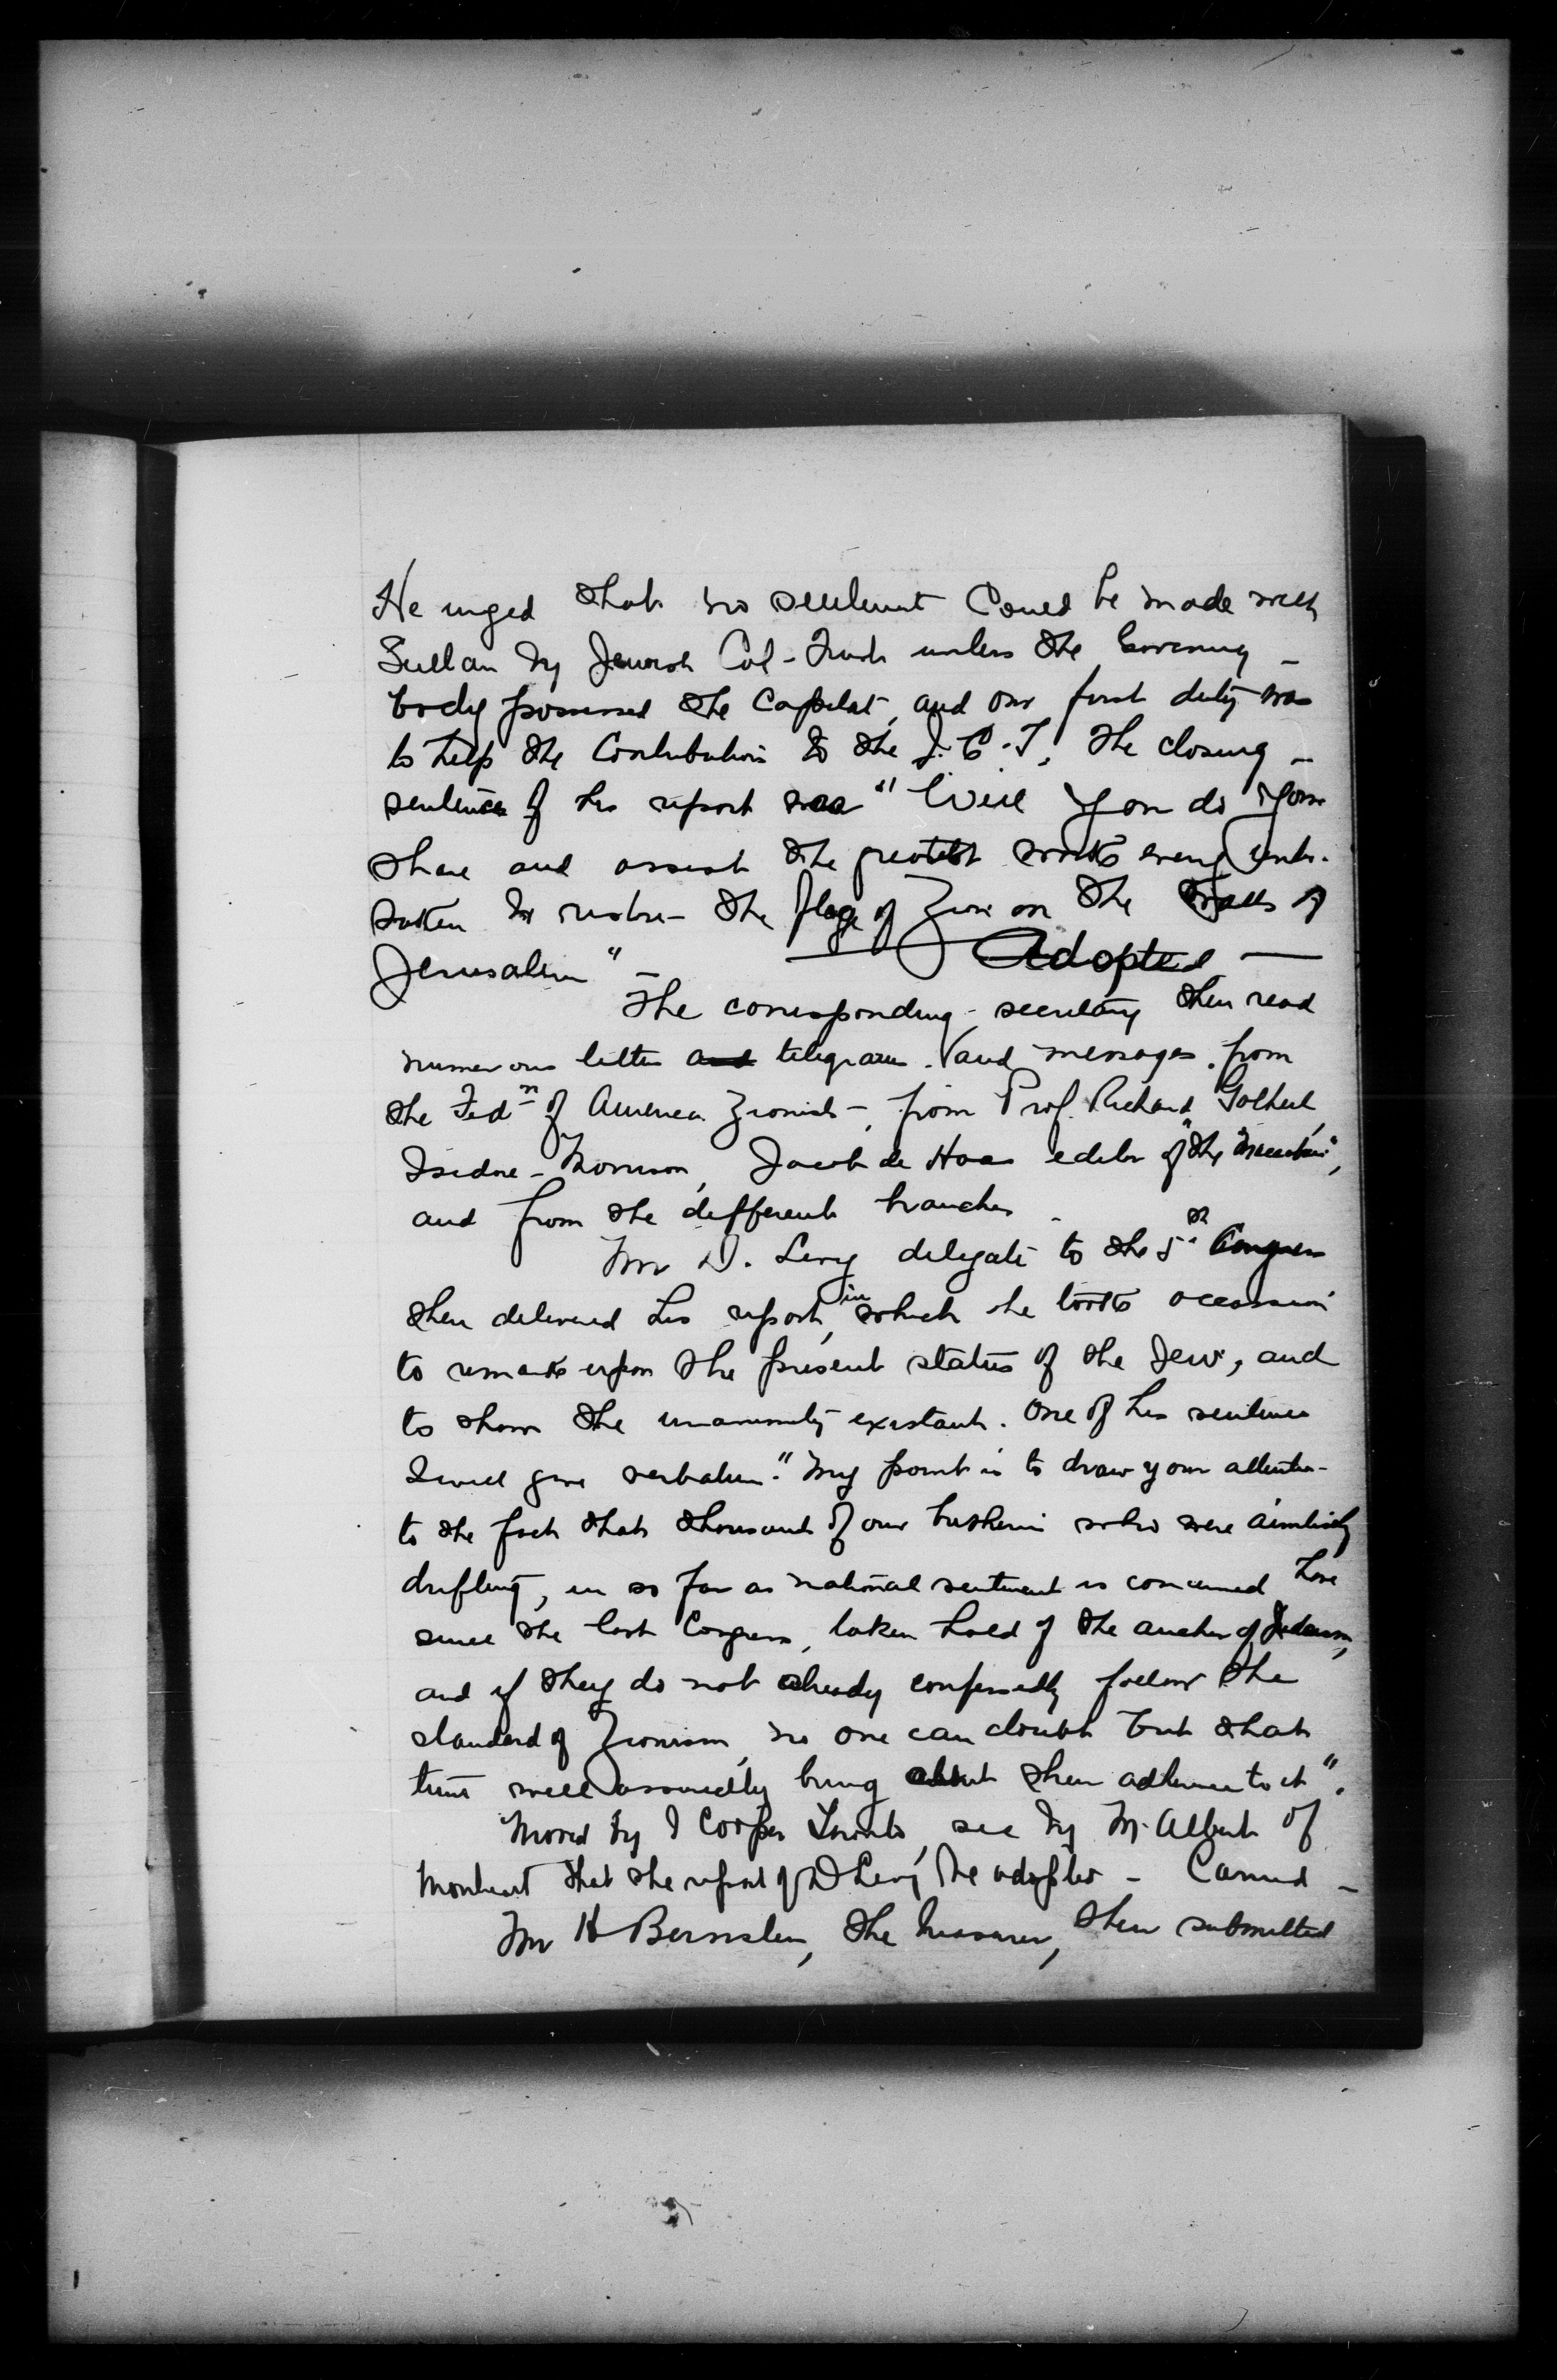 He urged that no settlement could be made with
Sultan by Jewish Col-Trust unless the
body possessed the Capital, and our first duty was
to help the Contributions to the J.C.T. The closing -
sentence of his report was "Will you do your
share and assist the greatest work every under-
taken to restore the flag of Zion on the walls of
Jerusalem" -
Adopted -
The corresponding-secretary then read
numerous letters and telegrams. and messages from
the Fedn of America Zionists -, from Prof. Richard Gotheil,
Isidore - Morrison, Jacob de Haas editor of "the Maccabean",
and from the different branches.
Mr D. Levy delegate to the 5th Congress
then delivered his report, in which he took occassion
to remark upon the present status of the Jew, and
to show the unanimity existant. One of his sentences
I will give verbatim. "My point is to draw your attention-
to the fact that thousands of our bretheren who were aimlessly
drifting, in so far as national sentiment is concerned have
since the last Congress, taken hold of the anchor of Judaism,
and if they do not already confessedly follow the
standard of Zionism, no one can doubt but that
time will assuredly bring about their adherence to it".
Moved by I Cooper Toronto, sec by M. Albert of
Montreal that the report of D Levy be adopted - Carried -
Mr H Bernstein, the treasurer, then submitted